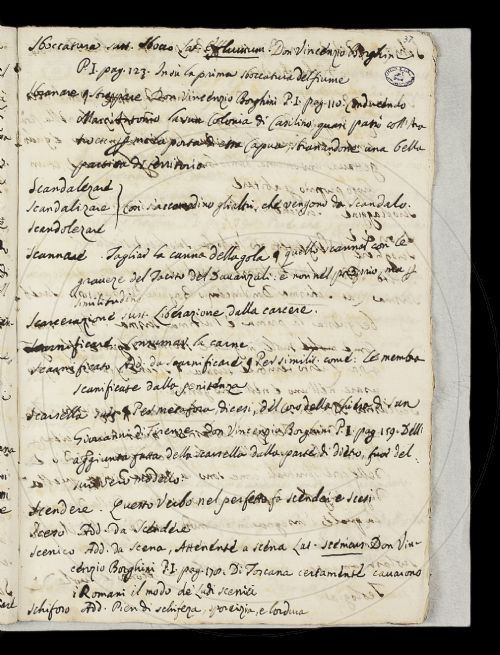 37
Sboccatura sust. Sbocco Lat. Effluvium. Don Vincenzio Borghini
P. I. pag. 123. In su la prima sboccatura del fiume
Sbranare q. Don Vincenzio Borghini P. I. pag. 110. Conducendo
Marc'Antonio la sua Colonia di Casilino quasi
la porta di Capua, sbranandone una bella
partita di territorio
Scandalezare
Scandalizare
Scandolezare
con s'accordino gli altri, che vengono da scandalo.
Scannare. Tagliar la canna della gola q quelli scannar con le
graveze del Tacito del Davanzati: è non nel proprio, ma
similitudin
Scarcerazione sust. Liberazione dalla carcere.
Scarnificare. Consumar la carne
Scarnificato Add. da Scarnificare q Per similit. come: Le membra
scarnificate dalla penitenza
Scarsella sust. q Per metafora dicesi, del coro della Chiesa di San
Giovanni di Firenze. Don Vincenzio Borghini P. I. pag. 159. Dell'
aggiunta fatta della scarsella dalla parte di dietro, fuor del
suo vero modello.
Scendere. Questo Verbo nel perfetto fa scendei, e scesi
Sceso Add. da Scendere
Scenico Add. da Scena, Attenente a scena Lat. scenicus. Don Vin-
cenzio Borghini P. I. pag. 170. Di Toscana certamente cavarono
i Romani il modo de' Ludi scenici
Schifoso Add. Pien di schifeza, sporcizia, e lordura